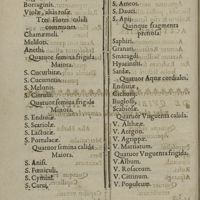 Borraginis.
Violæ, aliàs rosæ.
Tres Flores calidi
communes.
Chamæmeli.
Meliloti.
Anethi.
Quatuor semina frigida
Maiora.
S. Cucurbitæ.
S. Cucumeris.
S. Melonis.
S. Citruli.
Quatuor semina frigida
Minora.
S. Endiuiæ.
S. Scariolæ.
S. Lactucæ.
S. Portulacæ.
Quatuor semina calida
Maiora.
S. Anisi.
S. Fœniculi.
S. Cymini.
S. Carui.
S. Ameos.
S. Dauci.
S. Apij.
Quinque fragmenta
pretiosa.
Saphiri.
Granati.
Smaragdi.
Hyacinthi.
Sardæ.
Quatuor Aquæ cordiales.
Endiuiæ.
Cichorij.
Buglossi.
Scabiosæ.
Quatuor Vnguenta calida.
V. Altheæ.
V. Aregon.
V. Agrippæ.
V. Martiatum.
Quatuor Vnguenta frigida.
V. Album.
V. Rosaceum.
V. Citrinum.
V. Populeum.